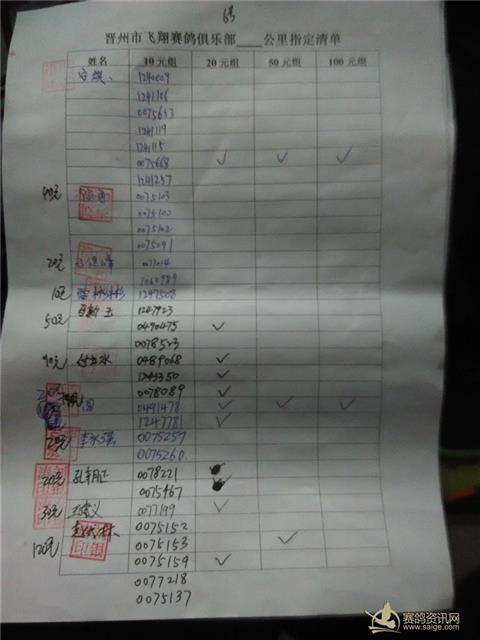 晋州市飞翔赛鸽俱乐部____公里指定清单
姓名 10元组 20元组 50元组 100元组
1240009
1241106
0075633
1241119
1241115
0075668 ✓ ✓ ✓
1241237
40元 0075103
0075100
0075102
0075091
20元 0071014
1060989
10元 1247508
吕新玉 1247923
50元 0490475 ✓
0078523
90元 付书水 0489068 ✓
1243350 ✓
0078089 ✓
0491478 ✓ ✓ ✓
1247781 ✓
20元 李永强 0075257
0075260
20元 孔章月正 0078221
0075467
30元 0077199 ✓
0075152
120元 0075153 ✓
0075159 ✓
0077218
0075137
赛鸽资讯网
www.saige.com